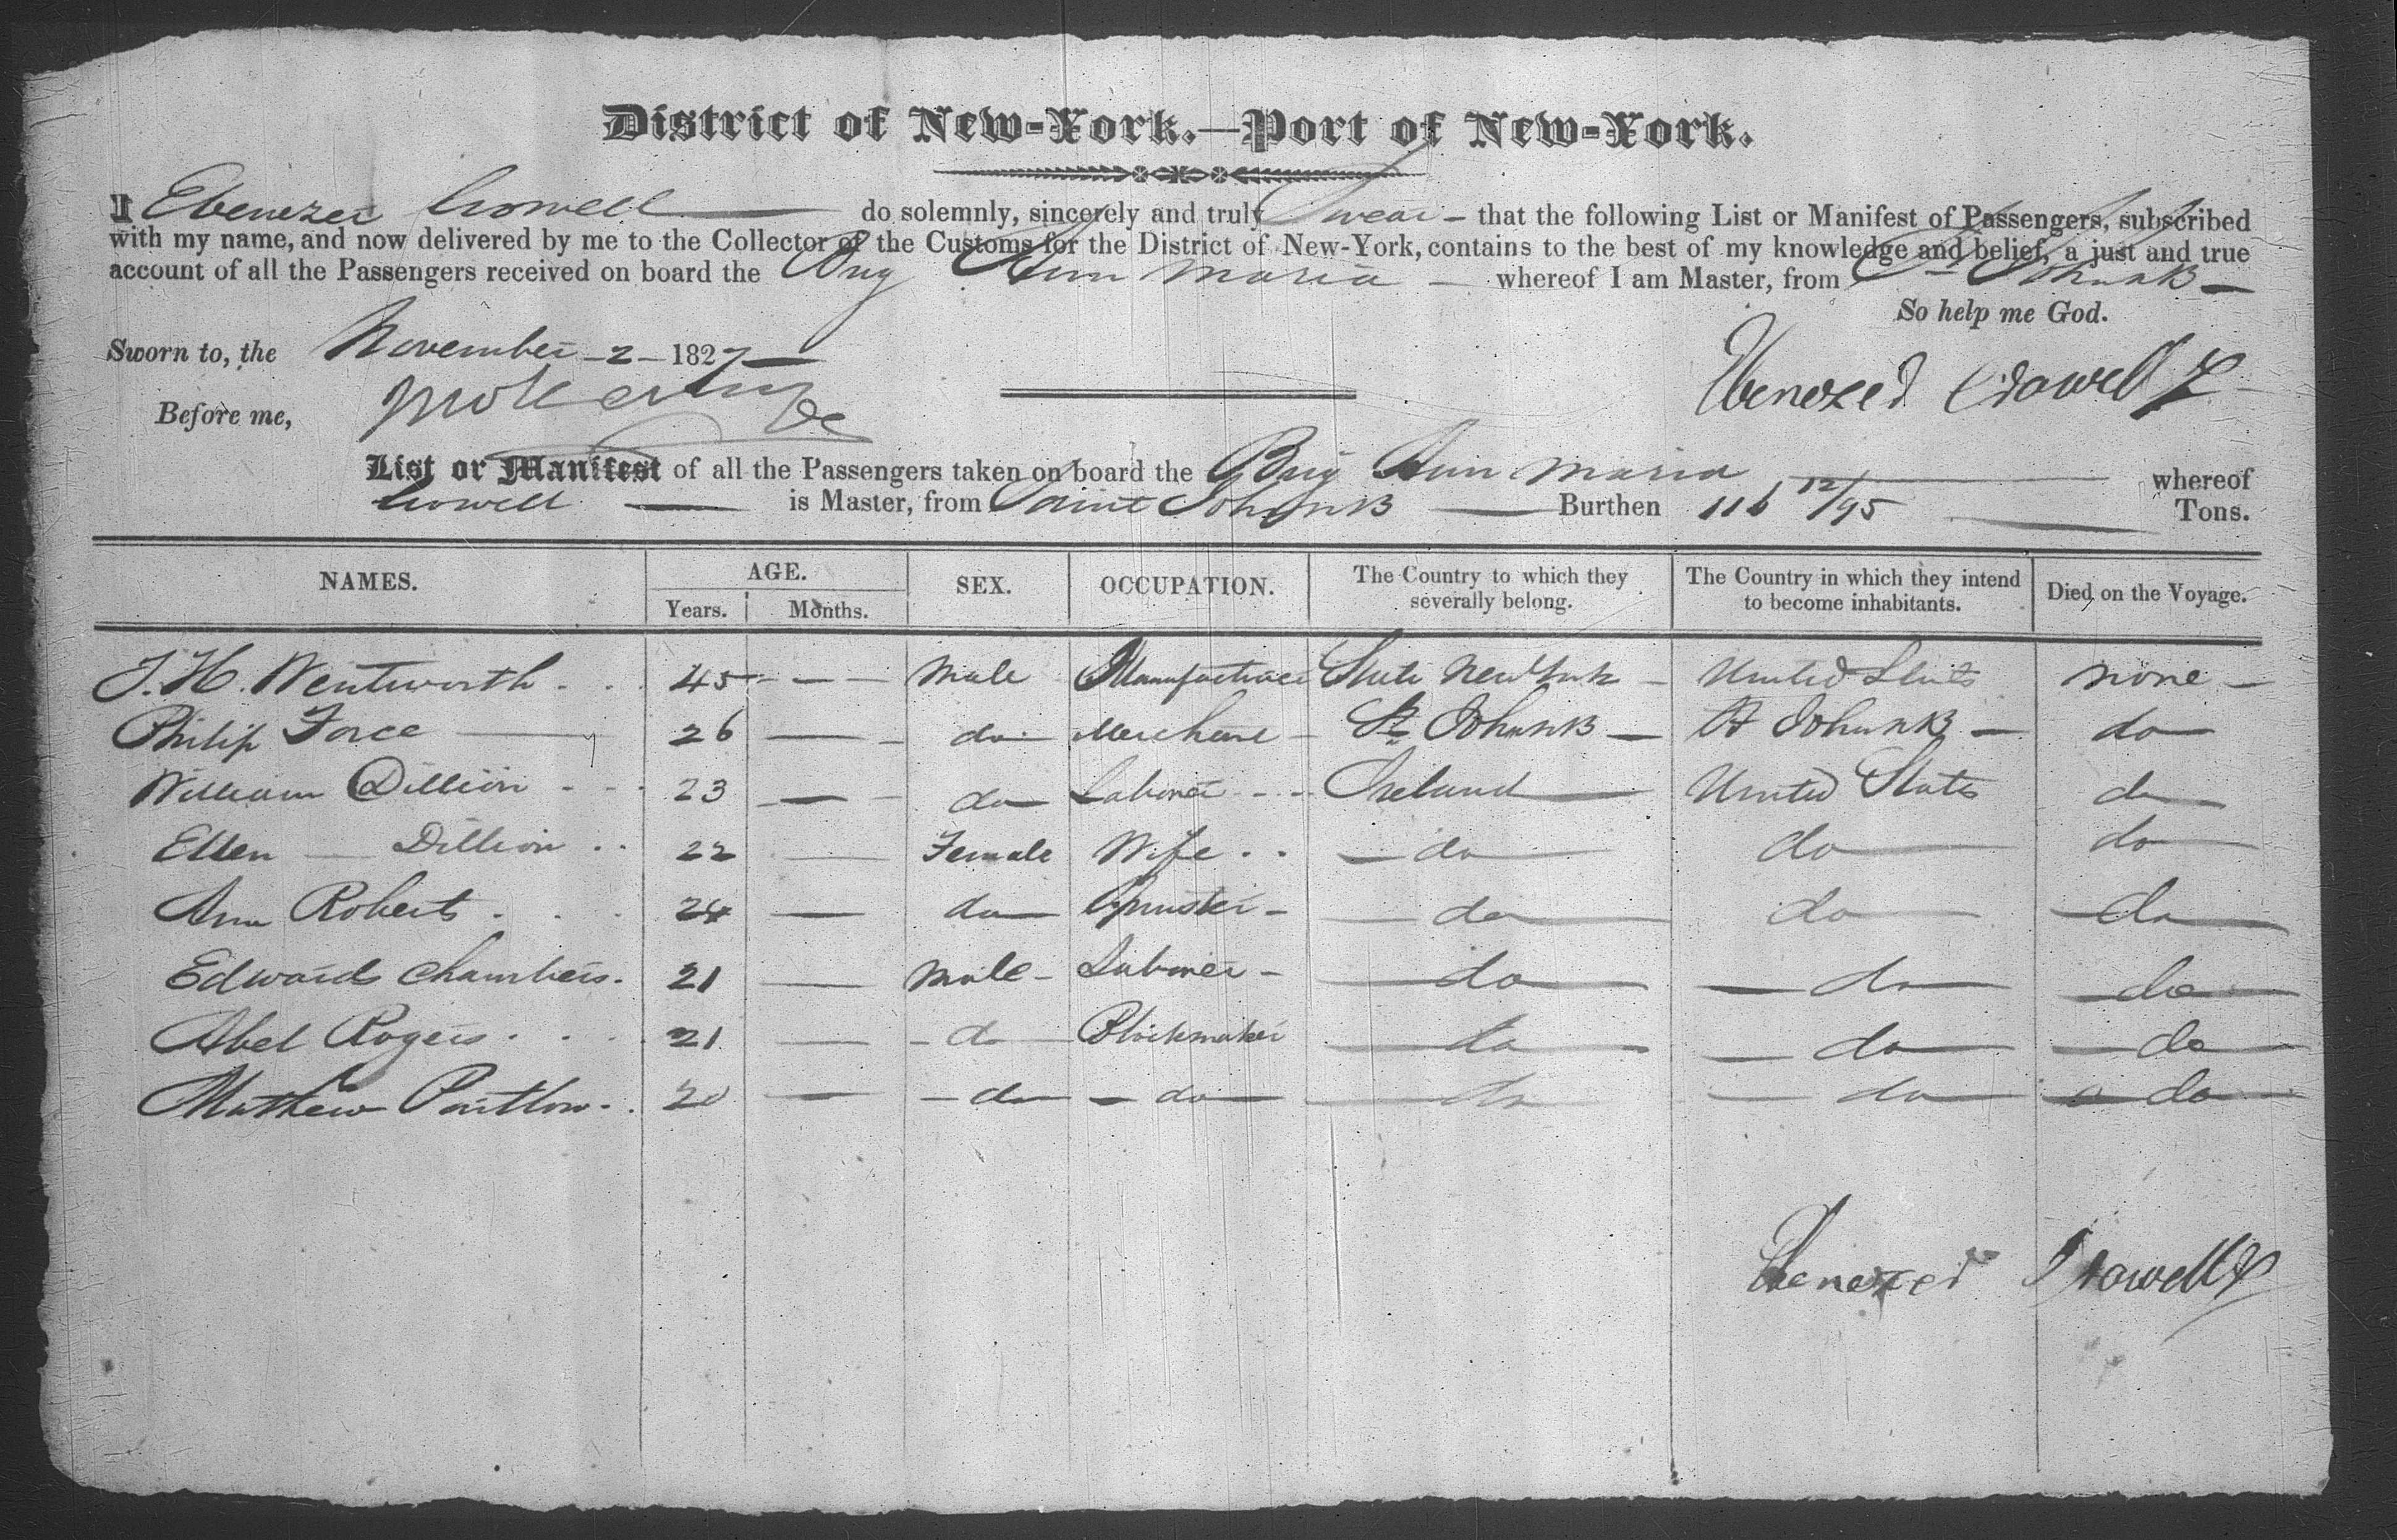 District of New-York.—Port of New-York.
I Ebenezer Crowell do solemnly, sincerely and truly Swear - that the following List or Manifest of Passengers, subscribed
with my name, and now delivered by me to the Collector of the Customs for the District of New-York, contains to the best of my knowledge and belief, a just and true
account of all the Passengers received on board the Brig Ann Maria - whereof I am Master, from St John NB -
So help me God.
Sworn to, the November - 2 - 1827
Ebenezer Crowell
Before me,
List or Manifest of all the Passengers taken on board the Brig Ann Maria whereof
Crowell is Master, from Saint John NB Burthen 116 12/95 Tons.
NAMES. AGE. SEX. OCCUPATION. The Country to which they severally belong. The Country in which they intend to become inhabitants. Died on the Voyage.
Years. Months.
J. H. Wentworth 45 - Male Manufacturer State New York United States none
Philip Force 26 - do Merchant St John NB St John NB do
William Dillion 23 - do Laborer Ireland United States do
Ellen Dillion 22 - Female Wife do do do
Ann Roberts 24 - do Spinster do do do
Edward Chambers 21 - Male Laborer do do do
Abel Rogers 21 - do Blockmaker do do do
Mathew Pautlow 20 - do do do do do
Ebenezer Crowell